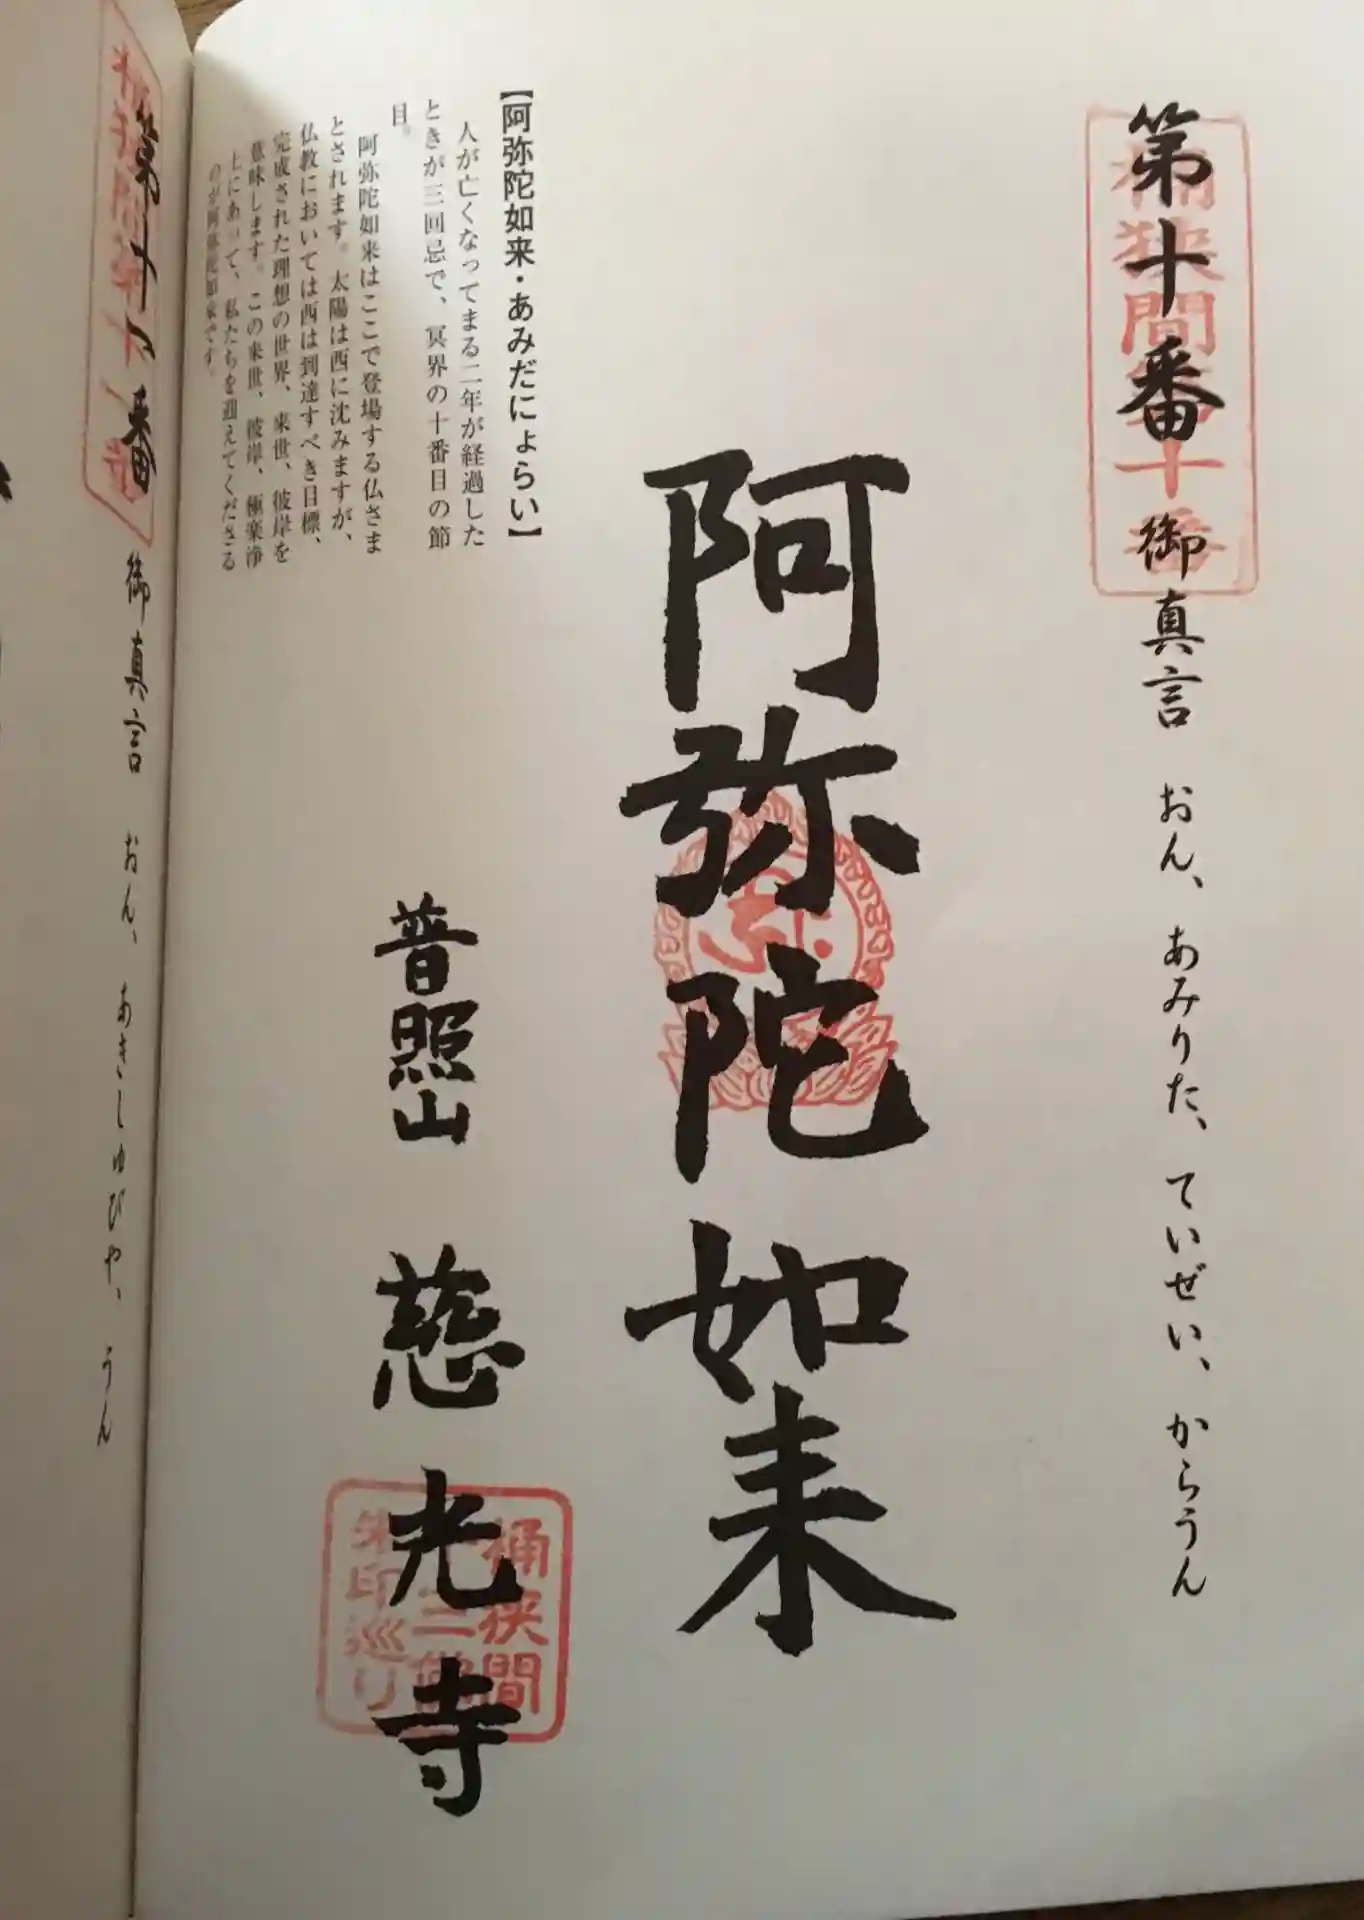 第十番 御真言 おん、あみりた、ていぜい、からうん
桶狭間第十番
阿弥陀如来
普照山 慈光寺
桶狭間
十二佛
朱印巡り
【阿弥陀如来・あみだにょらい】
人が亡くなってまる二年が経過した
ときが三回忌で、冥界の十番目の節
目。
阿弥陀如来はここで登場する仏さま
とされます。太陽は西に沈みますが、
仏教においては西は到達すべき目標、
完成された理想の世界、来世、彼岸を
意味します。この来世、彼岸、極楽浄
土にあって、私たちを迎えてくださる
のが阿弥陀如来です。
第十一番 御真言 おん、あきしゅびや、うん